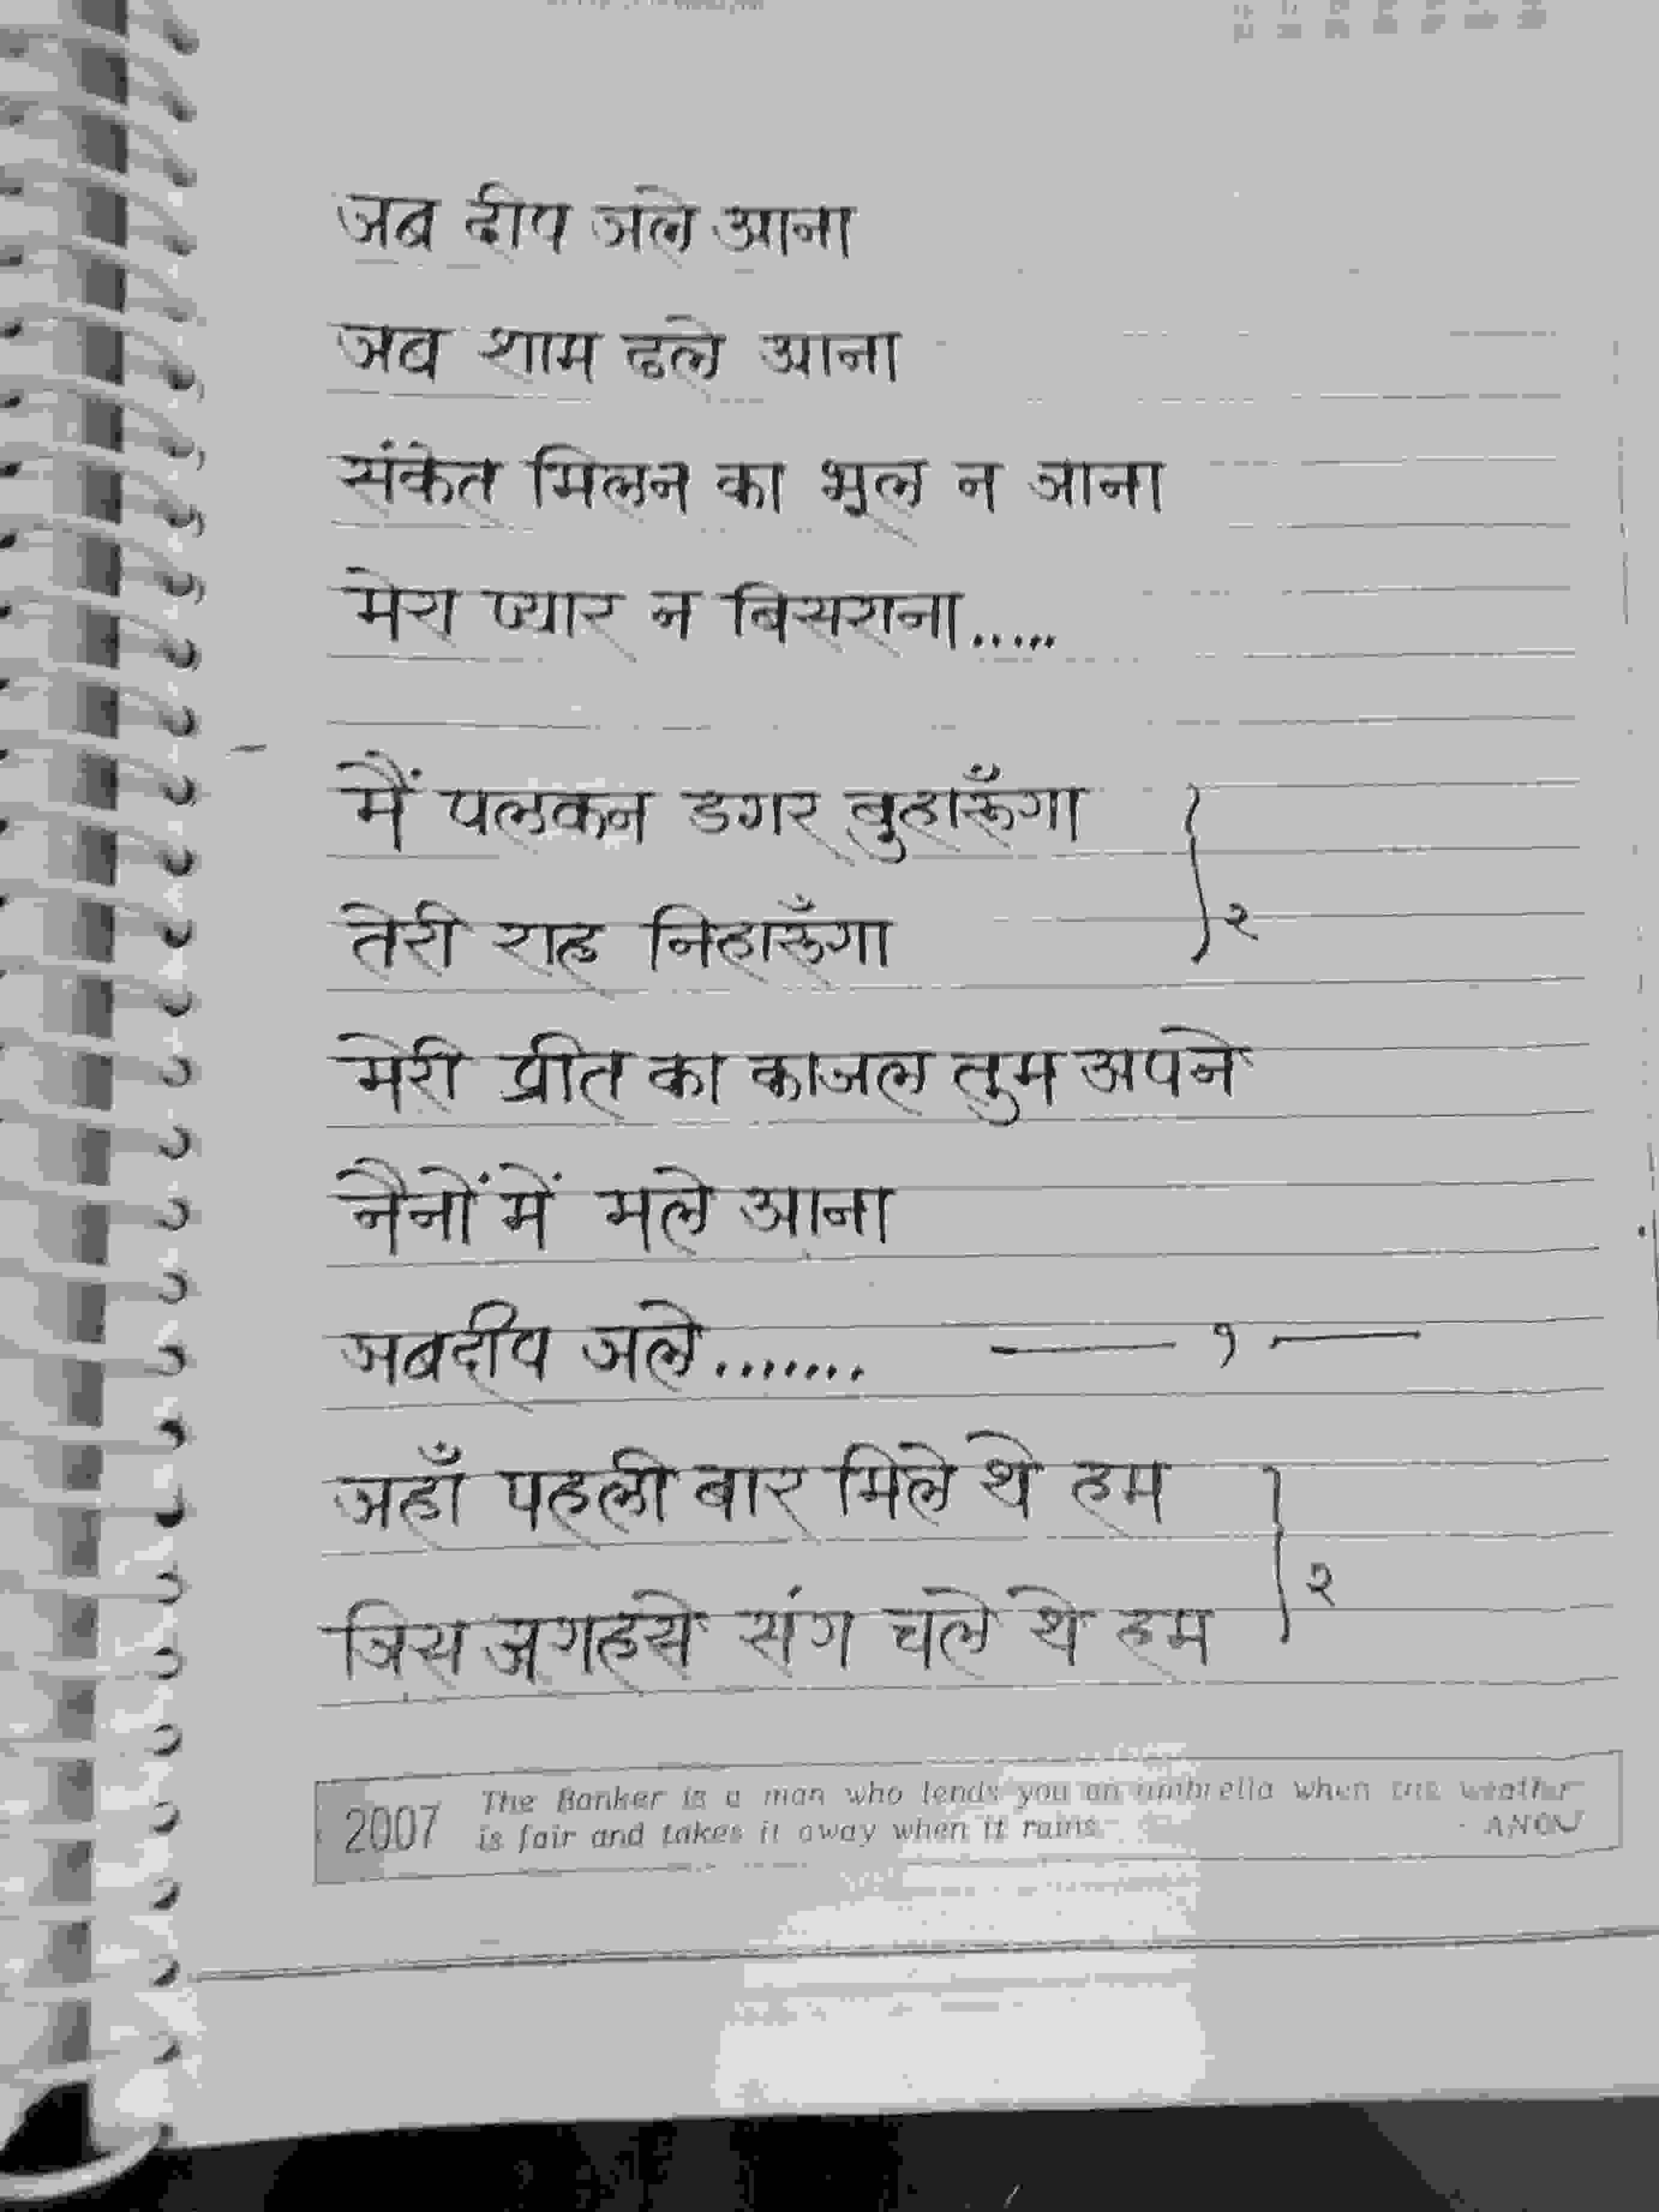 जब दीप जले आना
जब शाम ढले आना
संकेत मिलन का भूल न जाना
मेरा प्यार न बिसराना.....
मैं पलकन डगर बुहारूँगा
तेरी राह निहारूँगा
} २
मेरी प्रीत का काजल तुम अपने
नैनों में मले आना
जबदीप जले....... —— १ ——
जहाँ पहली बार मिले थे हम
जिस जगहसे संग चले थे हम
} २
2007 The Banker is a man who lends you an umbrella when the weather
is fair and takes it away when it rains. - ANON